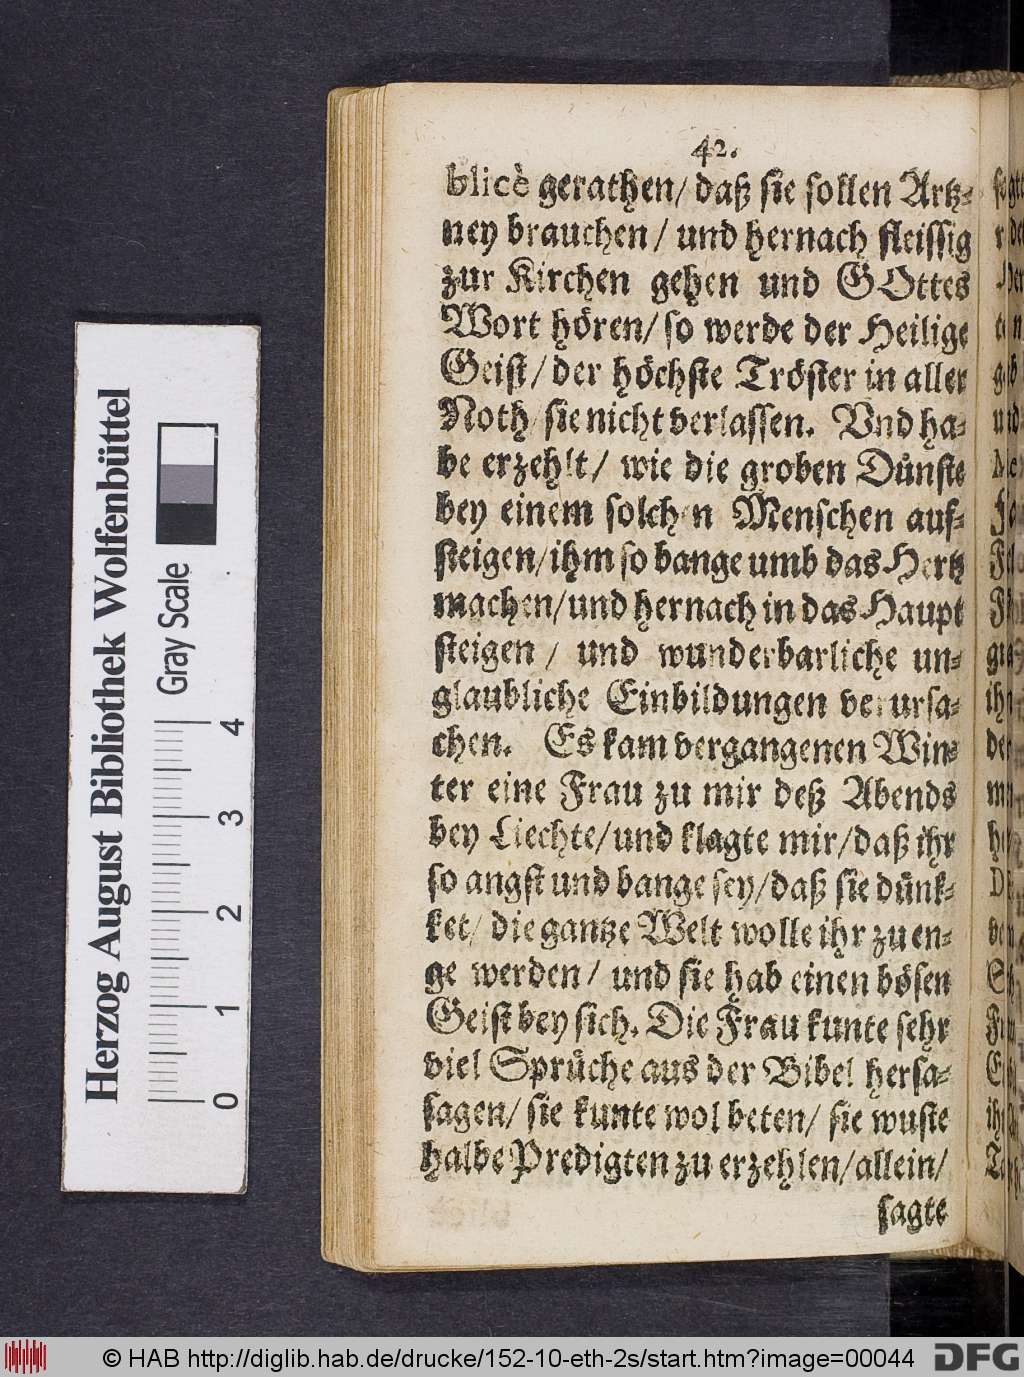 42.
blicè gerathen/ daß sie sollen Artz-
ney brauchen/ und hernach fleissig
zur Kirchen gehen und GOttes
Wort hören/ so werde der Heilige
Geist/ der höchste Tröster in aller
Noth/ sie nicht verlassen. Vnd ha-
be erzehlt/ wie die groben Dünste
bey einem solchen Menschen auf-
steigen/ ihm so bange umb das Hertz
machen/ und hernach in das Haupt
steigen/ und wunderbarliche un-
glaubliche Einbildungen verursa-
chen. Es kam vergangenen Win-
ter eine Frau zu mir deß Abends
bey Liechte/ und klagte mir/ daß ihr
so angst und bange sey/ daß sie dünk-
ket/ die gantze Welt wolle ihr zu en-
ge werden/ und sie hab einen bösen
Geist bey sich. Die Frau kunte sehr
viel Sprüche aus der Bibel hersa-
sagen/ sie kunte wol beten/ sie wuste
halbe Predigten zu erzehlen/ allein/
sagte
Herzog August Bibliothek Wolfenbüttel
Gray Scale
0 1 2 3 4
© HAB http://diglib.hab.de/drucke/152-10-eth-2s/start.htm?image=00044
DFG